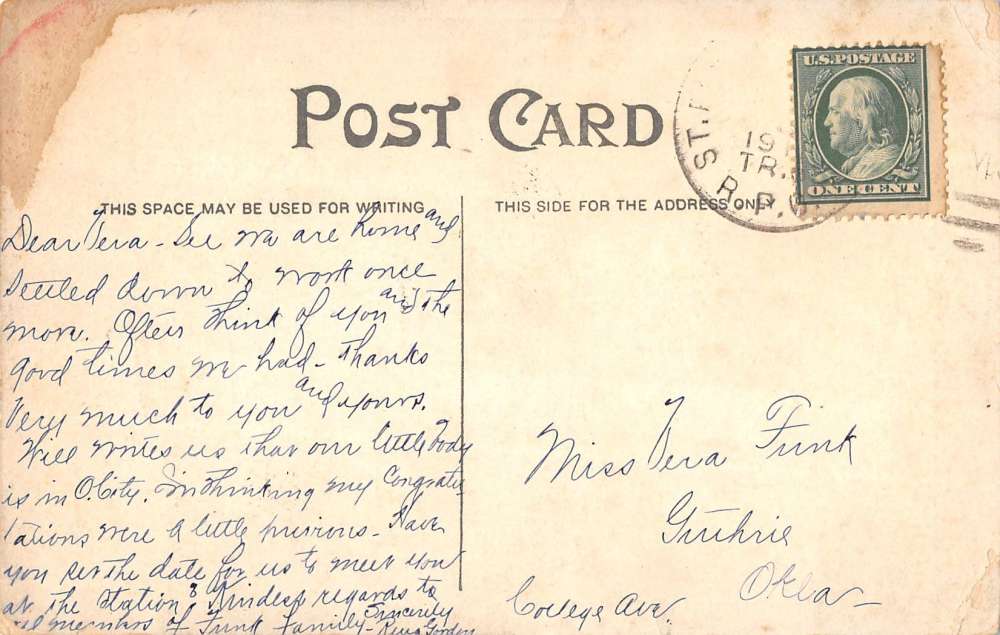 POST CARD
U.S.POSTAGE
ONE CENT
ST.
191
TR.
R.P.O.
THIS SPACE MAY BE USED FOR WRITING
THIS SIDE FOR THE ADDRESS ONLY
Dear Vera - See we are home and
settled down to work once
more. Often think of you and the
good times we had - thanks
very much to you and yours.
Will writes us that our little
is in O. City. Im thinking my Congratu
lations were a little previous - Have
you set the date for us to meet you
at the Station? Kindest regards to
all members of Funk Family - Sincerely
Gordon
Miss Vera Funk
Guthrie
Okla -
College Ave.